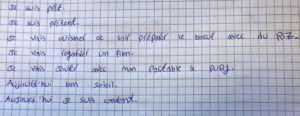 Je suis prêt.
Je suis présent.
Je vais cuisiner ce soir préparer le boeuf avec du Riz.
Je vais regarder un film.
Je vais jouer avec mon portable à PUBG.
Aujourd'hui bon soleil.
Aujourd'hui je suis content.